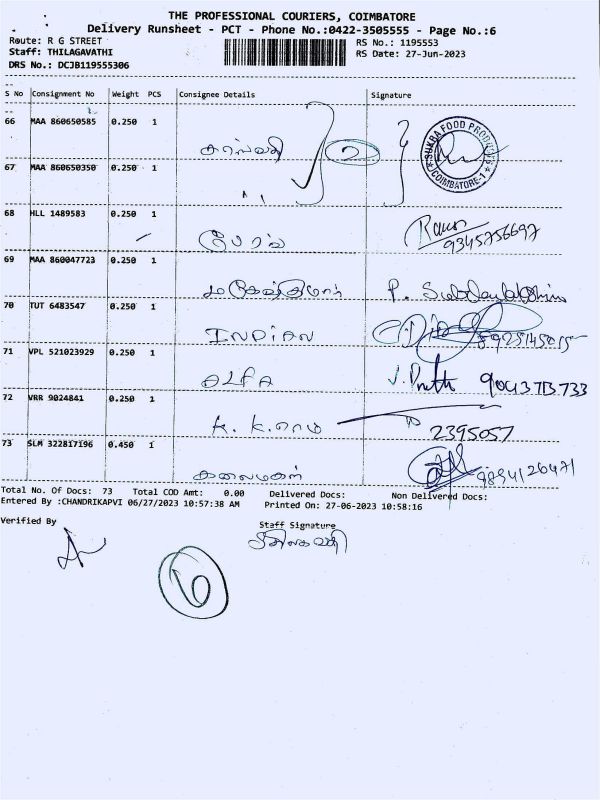 THE PROFESSIONAL COURIERS, COIMBATORE
Delivery Runsheet - PCT - Phone No.:0422-3505555 - Page No.:6
Route: R G STREET
RS No.: 1195553
Staff: THILAGAVATHI
RS Date: 27-Jun-2023
DRS No.: DCJB119555306
S No Consignment No Weight PCS Consignee Details Signature
66 MAA 860650585 0.250 1
சரஸ்வதி 2
SUKRA FOOD PRODUCTS COIMBATORE-1
67 MAA 860650350 0.250 1
68 HLL 1489583 0.250 1
9345756697
69 MAA 860047723 0.250 1
மகேஷ்குமார்
70 TUT 6483547 0.250 1
INDIAN
71 VPL 521023929 0.250 1
ALFA
72 VRR 9024841 0.250 1
K. K. ராம 2395057
73 SLM 322817196 0.450 1
கலைமகள்
Total No. Of Docs: 73 Total COD Amt: 0.00 Delivered Docs: Non Delivered Docs:
Entered By :CHANDRIKAPVI 06/27/2023 10:57:38 AM Printed On: 27-06-2023 10:58:16
Verified By
Staff Signature
6